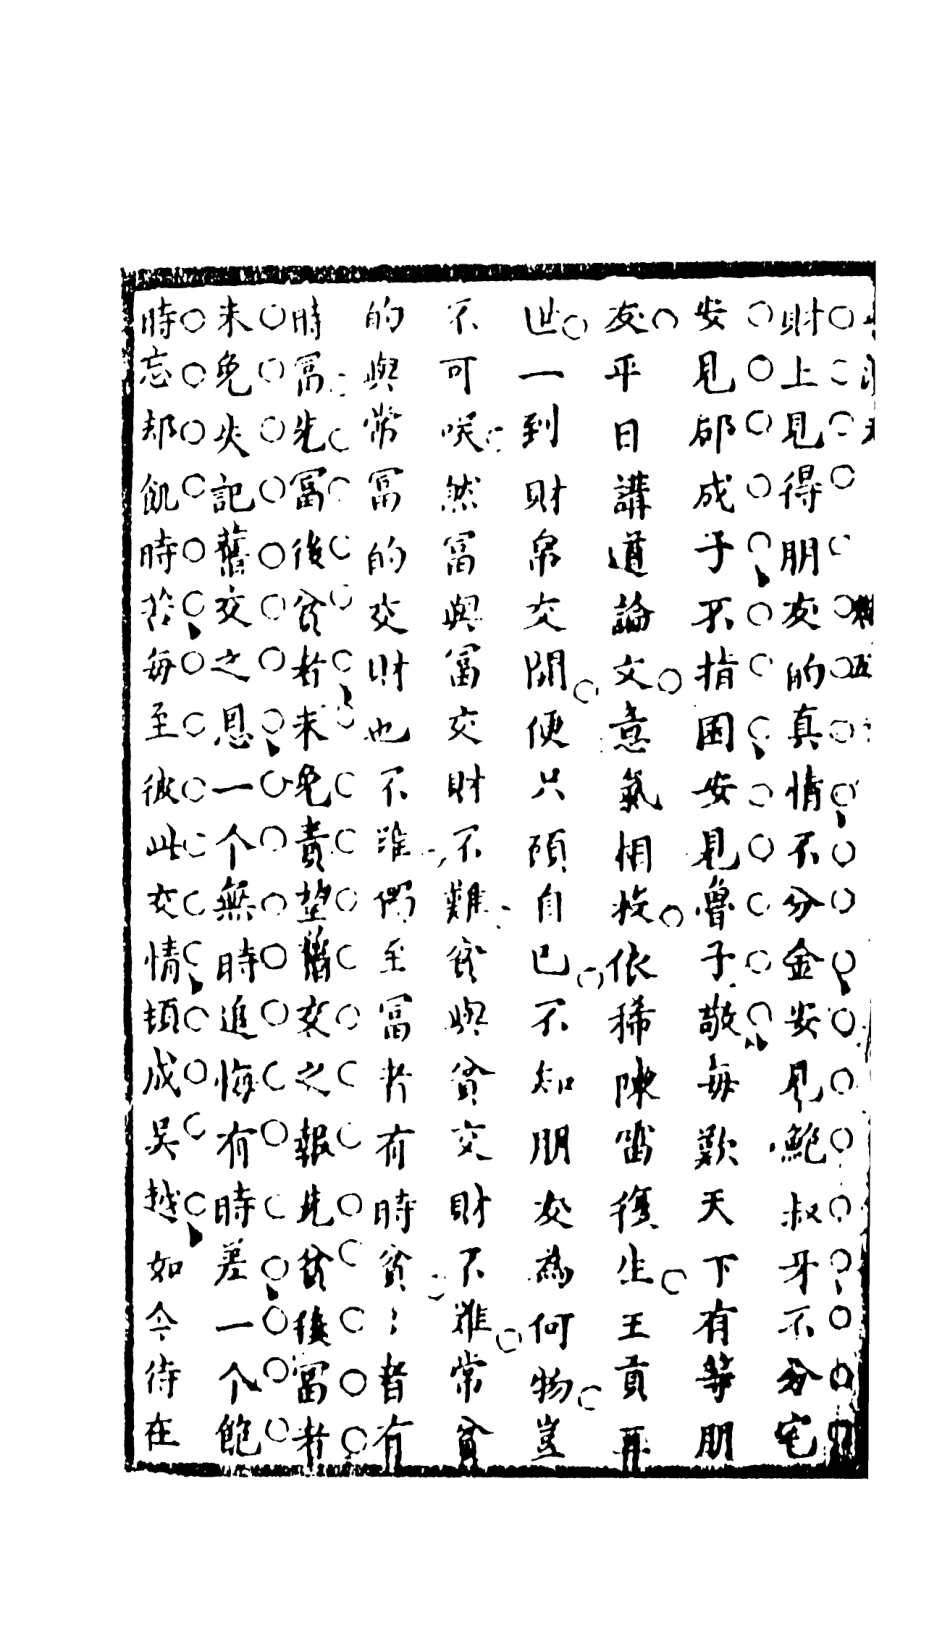 財上見得朋友的真情不分金安見鮑叔牙不分宅
安見郈成子不指囷安見魯子敬每歎天下有等朋
友平日講道論文意氣相投依稀陳雷復生王貢再
世一到財帛交關便只頋自已不知朋友為何物豈
不可咲然富與富交財不難貧與貧交財不難常貧
的與常富的交財也不難獨至富者有時貧〻者有
時富先富後貧者未免責望舊交之報先貧後富者
未免失記舊交之恩一个無時追悔有時差一个飽
時忘却飢時苦每至彼此交情頓成吳越如今待在